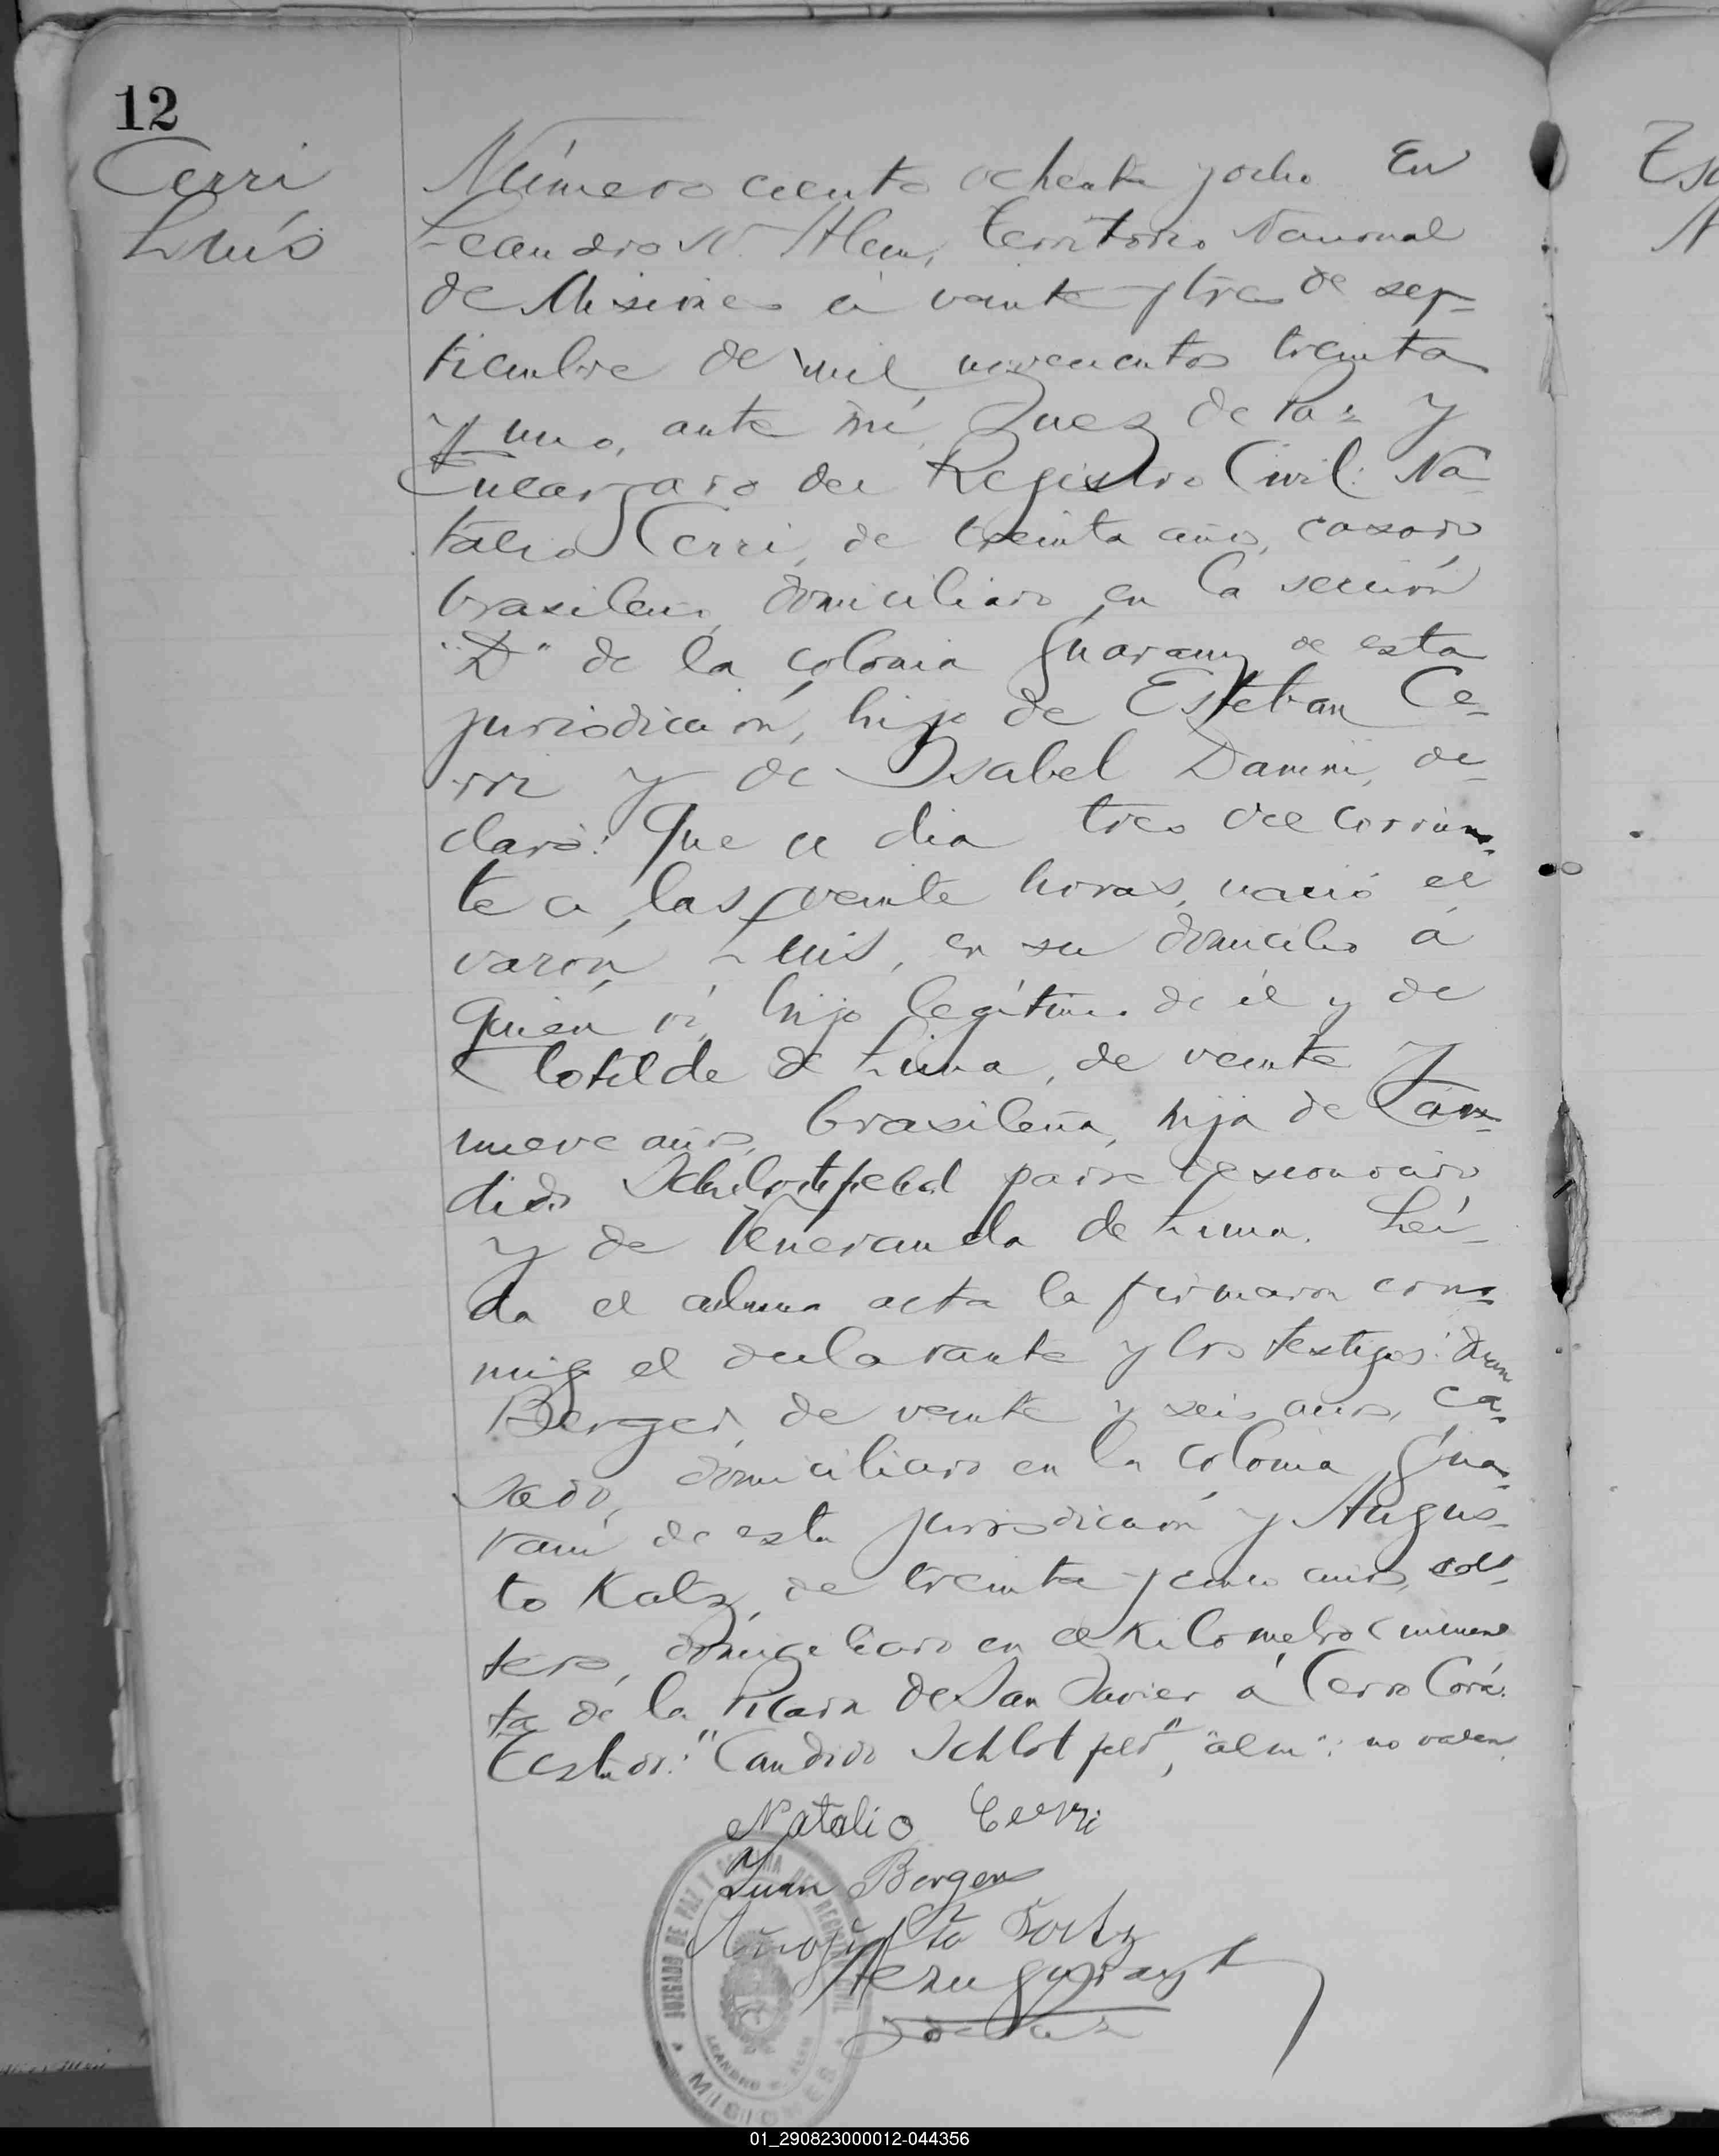 12
Cerri
Luís
Número ciento ochenta y ocho En
Leandro N. Alem, Territorio Nacional
de Misiones á veinte y tres de sep-
tiembre de mil novecientos treinta
y uno, ante mí, Juez de Paz y
Encargado del Registro Civil: Na-
talio Cerri, de treinta años, casado
brasileño, domiciliado en la sección
"D" de la colonia Guarany de esta
jurisdicción, hijo de Esteban Ce-
rri y de Isabel Damini, de-
claró: Que el dia tres del corrien-
te a las veinte horas, nació el
varón Luis, en su domicilio á
quién ví, hijo legítimo de él y de
Clotilde de Lima, de veinte y
nueve años, brasileña, hija de Cán-
dido padre desconocido
y de Veneranda de Lima. Leí-
da el acta la firmaron con-
migo el declarante y los testigos: Juan
Berger, de veinte y seis años, ca-
sado, domiciliado en la colonia Gua-
raní de esta jurisdicción y Augus-
to Katz, de treinta y cinco años, sol-
tero, domiciliado en el kilometro cincuen
ta de la Picada de San Javier á Cerro Corá.
Testado: "Candido Schlotfeld", "alm": no valen.
Natalio Cerri
Juan Bergers
Augusto Katz
J de Paz
JUZGADO DE PAZ Y DEL REGISTRO CIVIL
LEANDRO N. ALEM
MISIONES
Es
N
01_290823000012-044356